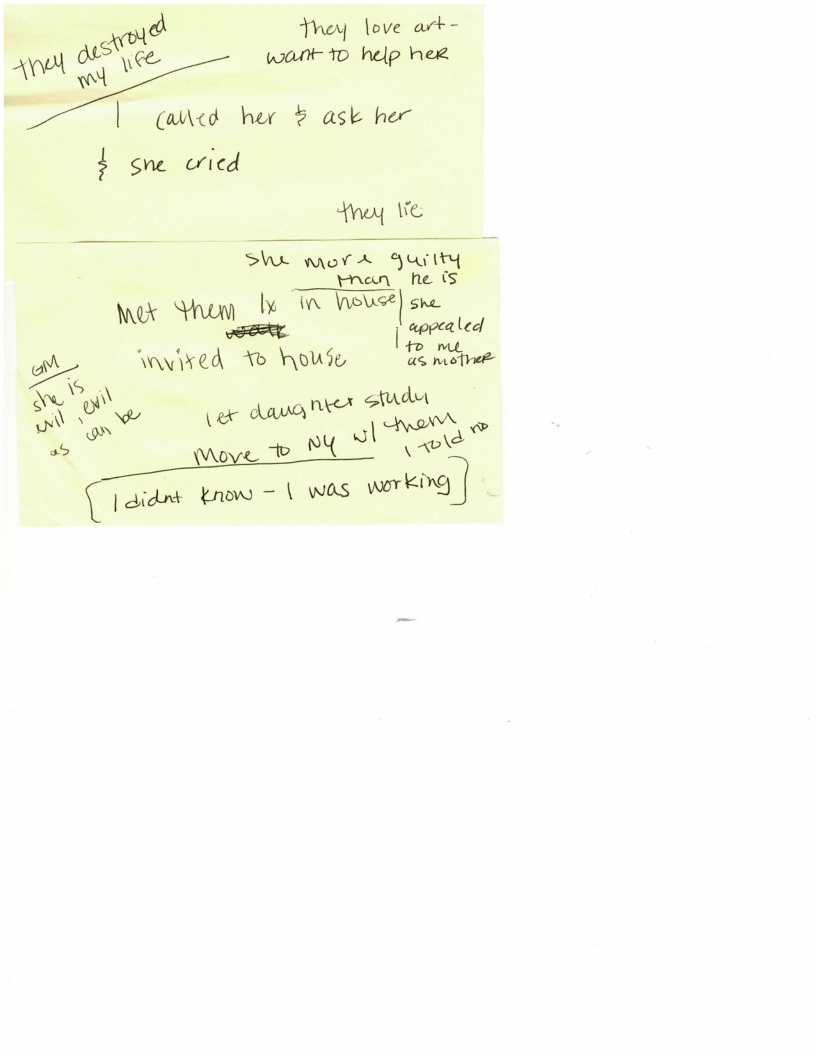 they destroyed
my life
they love art -
want to help her
I called her & ask her
& she cried
they lie
she more guilty
than he is
Met them 1x in house
she
appealed
to me
as mother
invited to house
GM
she is
evil, evil
as can be
let daughter study
Move to NY w/ them
I told no
[I didnt know - I was working]